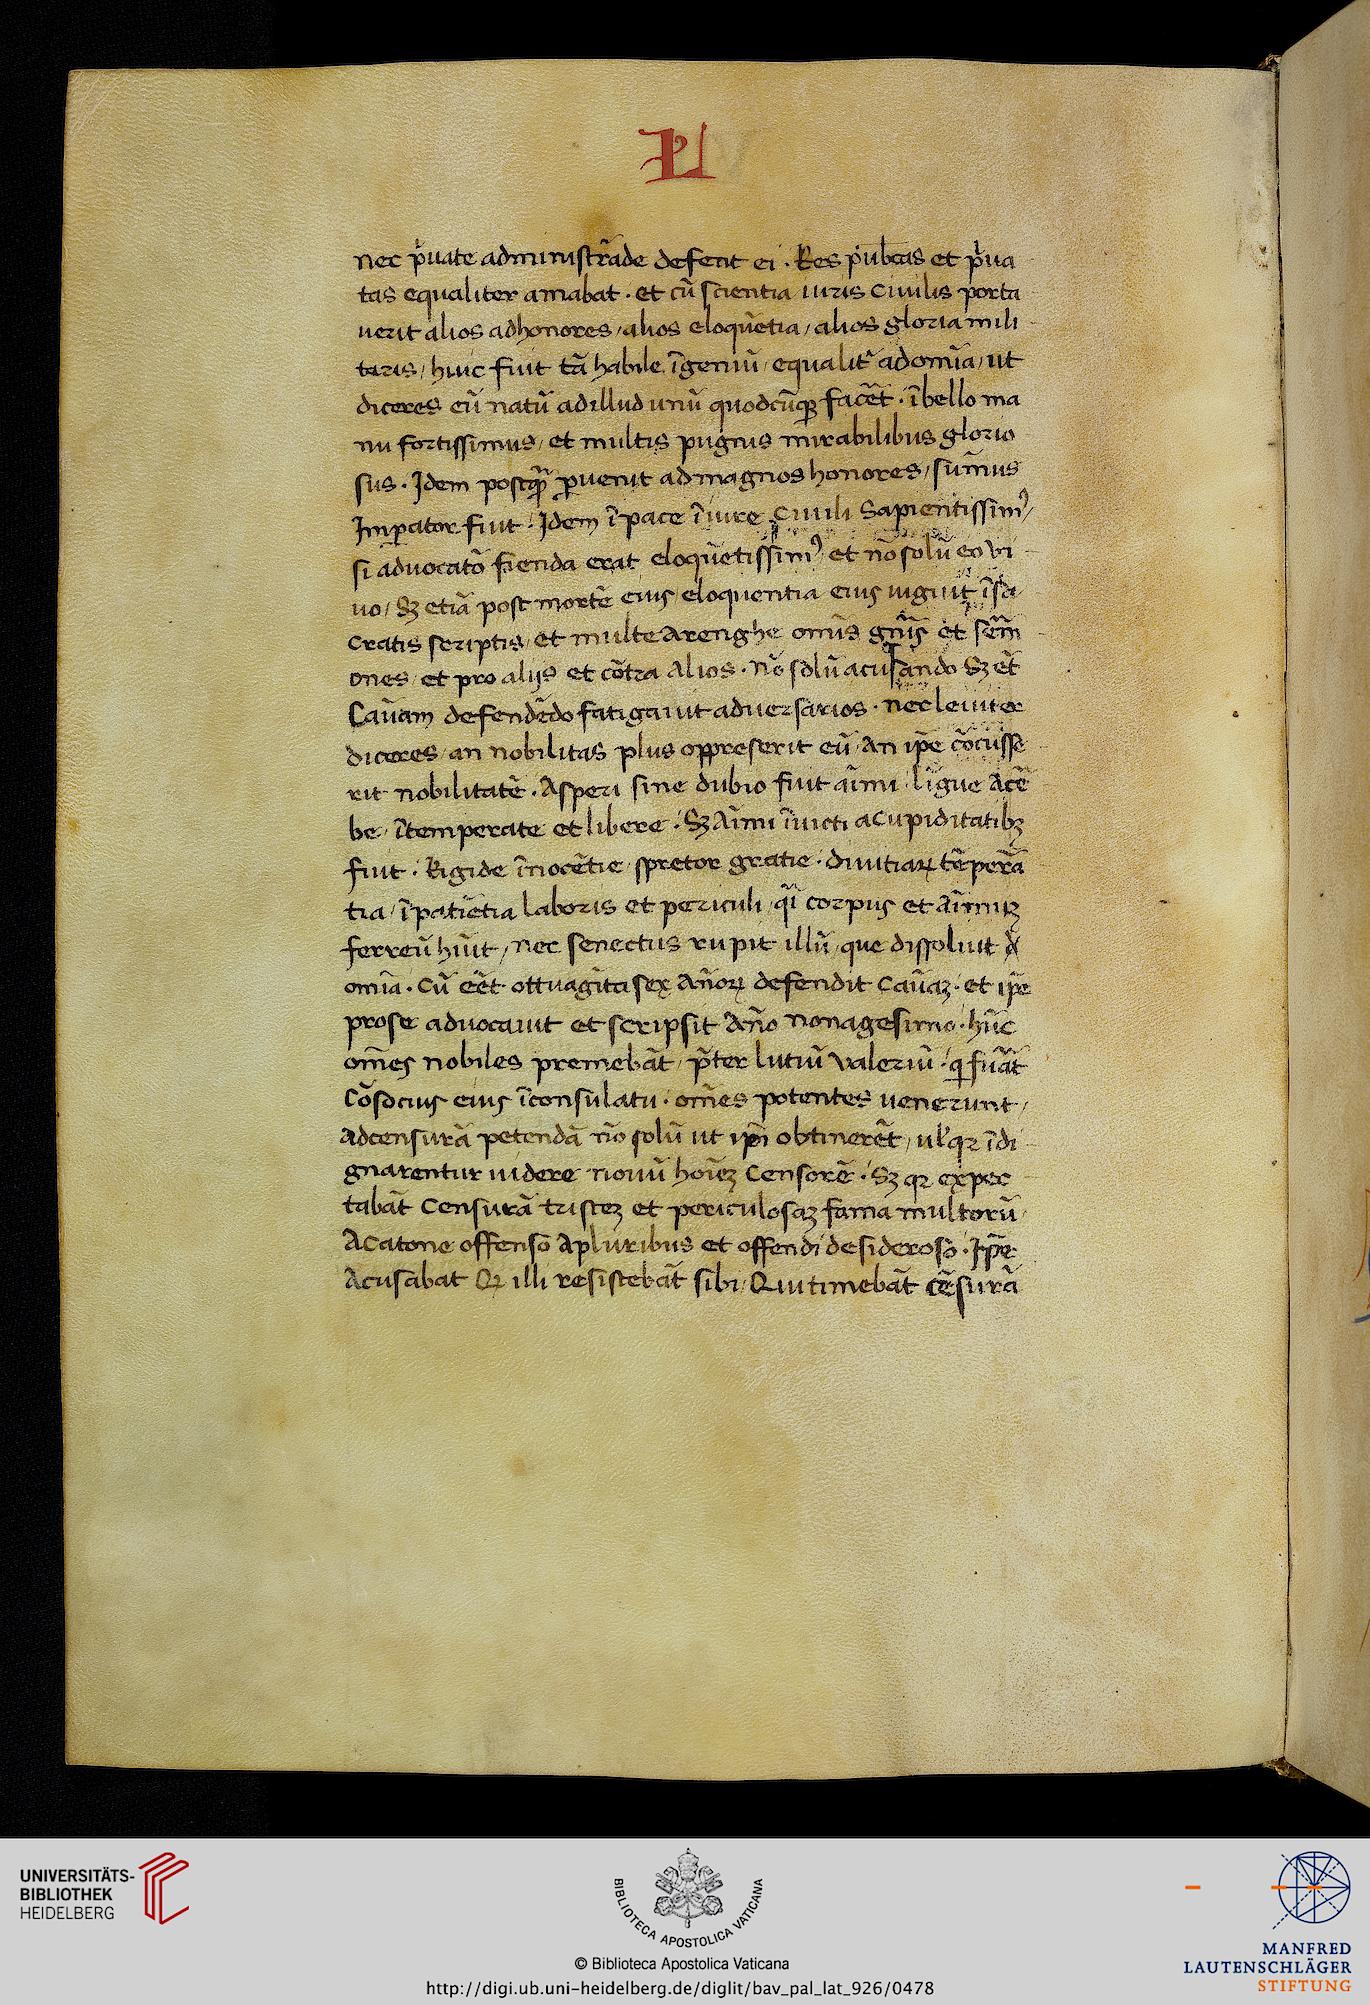 LI
nec p̄uate administr̄ade defecit ei · Res pub̄cas et p̄ua
tas equaliter amabat · et cū scientia iuris Ciuilis porta
uerit alios adhonores / alios eloquētia / alios gloria mili
taris / huic fuit tā habile īgeniū / equalit̄ adom̄ia / ut
diceres eū natū adillud unū quodcūqꝫ facēt · ībello ma
nu fortissimus / et multis pugnis mirabilibus glorio
sus · Idem postqꝫ̄ ꝑuenit admagnos honores / sūmus
Imꝑator fuit · Idem īpace īiure Ciuili Sapientissimꝰ /
si aduocatō fienda erat eloquētissimꝰ et nō solū eo vi
uo / Sꝫ etiā post mortē eius / eloquentia eius uiguit īsa
cratis scriptis / et multe Arenghe om̄is gn̄is et sēm
ones / et pro alijs et cōtra Alios · Nō solū acusando Sꝫ ēt
Cāuam defendēdo fatigauit aduersarios · nec leuiter
diceres / an nobilitas plus oppreserit eū / An ip̄e cōcusse
rit nobilitatē · Asperi sine dubio fuit aīmi / līgue Acē
be / ītemperate et libere · Sꝫ Aīmi īuicti acupiditatibꝫ
fuit · Rigide īnocētie / spretor gratie · diuitiaꝝ tēperā
tia / īpatiētia laboris et periculi / q̄i corpus et Aīmuꝫ
ferreū hūit / nec senectus rupit illū / que dissoluit
om̄ia · Cū eēt ottuagīta sex An̄oꝝ defendit Cāuaꝫ · et ip̄e
prose aduocauit et scripsit An̄o nonagesimo · hūc
om̄es nobiles premebāt / p̄ter lutiū valeriū · q̄ fuāt
Cōsocius eius īconsulatu · om̄es potentes uenerunt /
Adcensurā petendā nō solū ut ip̄i obtinerēt / ul' qꝛ īdi
gnarentur uidere nouū hoīeꝫ Censorē · Sꝫ qꝛ expec
tabāt Censurā tristeꝫ et periculosaꝫ fama multorū
ACatone offenso Apluribus et offendi desideroso · Ip̄e
Acusabat Qꝛ illi resistebāt sibi / Qui timebāt cēsurā
UNIVERSITÄTS-
BIBLIOTHEK
HEIDELBERG
BIBLIOTECA APOSTOLICA VATICANA
© Biblioteca Apostolica Vaticana
http://digi.ub.uni-heidelberg.de/diglit/bav_pal_lat_926/0478
MANFRED
LAUTENSCHLÄGER
STIFTUNG